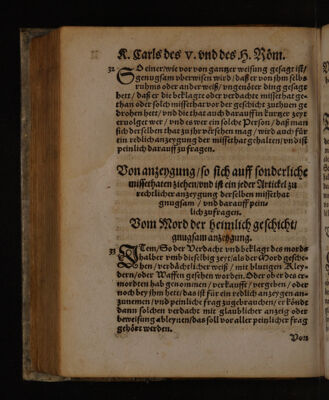 K. Carls des V. vnd des H. Röm.
32 SO einer/ wie vor von gantzer weisung gesagt ist/
genugsam vberwisen wird/ daß er von jhm selbs
ruhms oder ander weiß/ vngenöter ding gesagt
hett/ daß er die beklagte oder verdachte missethat ge-
than oder solch missethat vor der geschicht zuthuen ge
drohen hett/ vnd die that auch darauff in kurtzer zeyt
ervolget wer/ vnd es wer ein solche Person/ daß man
sich derselben that zu jhr versehen mag/ wird auch für
ein redlich anzeygung der missethat gehalten/ vnd ist
peinlich darauff zu fragen.
Von anzeygung/ so sich auff sonderliche
missethaten ziehen/ vnd ist ein jeder Artickel zu
rechtlicher anzeygung derselben missethat
gnugsam/ vnd darauff pein-
lich zu fragen.
Vom Mord der heimlich geschicht/
gnugsam anzeygung.
33 ITem/ So der Verdacht vnd beklagt des mords
halber vmb dieselbig zeyt/ als der Mord gesche-
hen/ verdächlicher weiß/ mit blutigen Kley-
dern/ oder Waffen gesehen worden. Oder ob er des er-
mordten hab genommen/ verkaufft/ vergeben/ oder
noch bey jhm hett/ das ist für ein redlich anzeygen an-
zunemen/ vnd peinliche frag zugebrauchen/ er könde
dann solchen verdacht mit glaublicher anzeig oder
beweisung ableynen/ das soll vor aller peinlicher frag
gehört werden.
Von